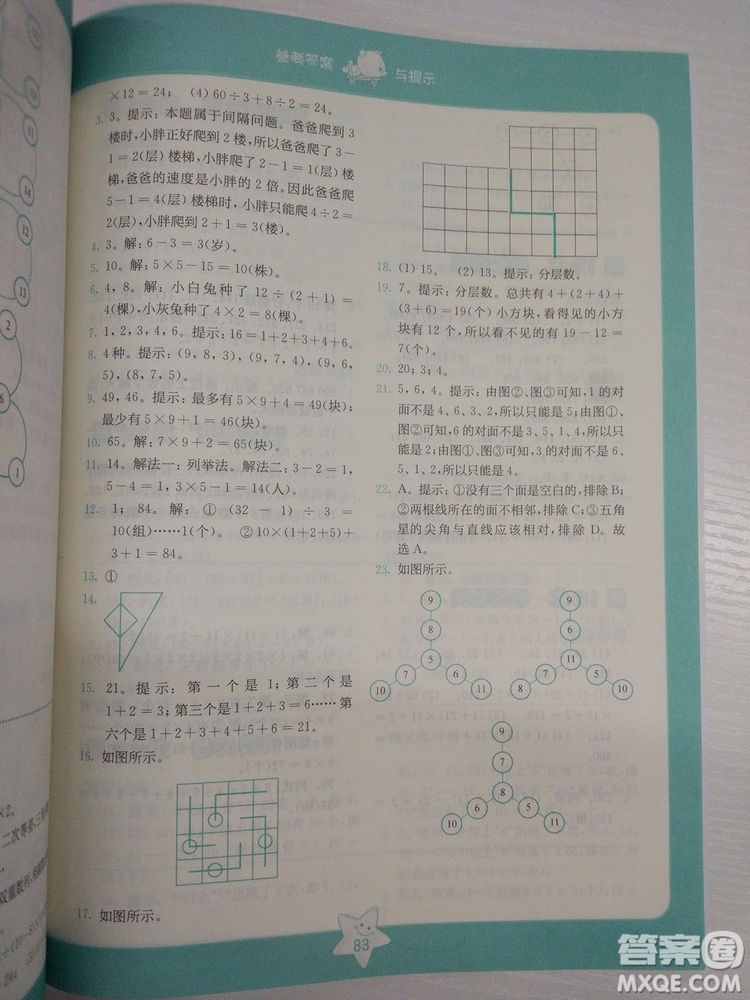 参考答案与提示
×12=24； (4) 60÷3+8÷2=24。
3. 3。提示：本题属于间隔问题。爸爸爬到 3
楼时，小胖正好爬到 2 楼，所以爸爸爬了 3－
1=2(层)楼梯，小胖爬了 2－1=1(层)楼
梯，爸爸的速度是小胖的 2 倍。因此爸爸爬
5－1=4(层)楼梯时，小胖只能爬 4÷2=
2(层)，小胖爬到 2+1=3(楼)。
4. 3。解：6－3=3(岁)。
5. 10。解：5×5－15=10(株)。
6. 4，8。解：小白兔种了 12÷(2+1)=
4(棵)，小灰兔种了 4×2=8(棵)。
7. 1，2，3，4，6。提示：16=1+2+3+4+6。
8. 4 种。提示：(9，8，3)，(9，7，4)，(9，6，
5)，(8，7，5)。
9. 49，46。提示：最多有 5×9+4=49(块)；
最少有 5×9+1=46(块)。
10. 65。解：7×9+2=65(块)。
11. 14。解法一：列举法。解法二：3－2=1，
5－4=1，3×5－1=14(人)。
12. 1；84。解：① (32－1)÷3=
10(组)……1(个)。 ②10×(1+2+5)+
3+1=84。
13. ①
14.
15. 21。提示：第一个是 1；第二个是
1+2=3；第三个是 1+2+3=6……第
六个是 1+2+3+4+5+6=21。
16. 如图所示。
17. 如图所示。
18. (1) 15。 (2) 13。提示：分层数。
19. 7。提示：分层数。总共有 4+(2+4)+
(3+6)=19(个)小方块，看得见的小方
块有 12 个，所以看不见的有 19－12=
7(个)。
20. 20；3；4。
21. 5，6，4。提示：由图②、图③可知，1 的对
面不是 4、6、3、2，所以只能是 5；由图①、
图②可知，2 的对面不是 3、5、1、4，所以只
能是 6；由图①、图③可知，3 的对面不是
5、1、2、6，所以只能是 4。
22. A。提示：①没有三个面是空白的，排除 B；
②两根线所在的面不相邻，排除 C；③五角
星的尖角与直线应该相对，排除 D。故
选 A。
23. 如图所示。
9
8
5
7 6
10 11
9
6
11
7 5
8 10
9
7
8
6 5
10 11
83
答案圈
MXQE.COM